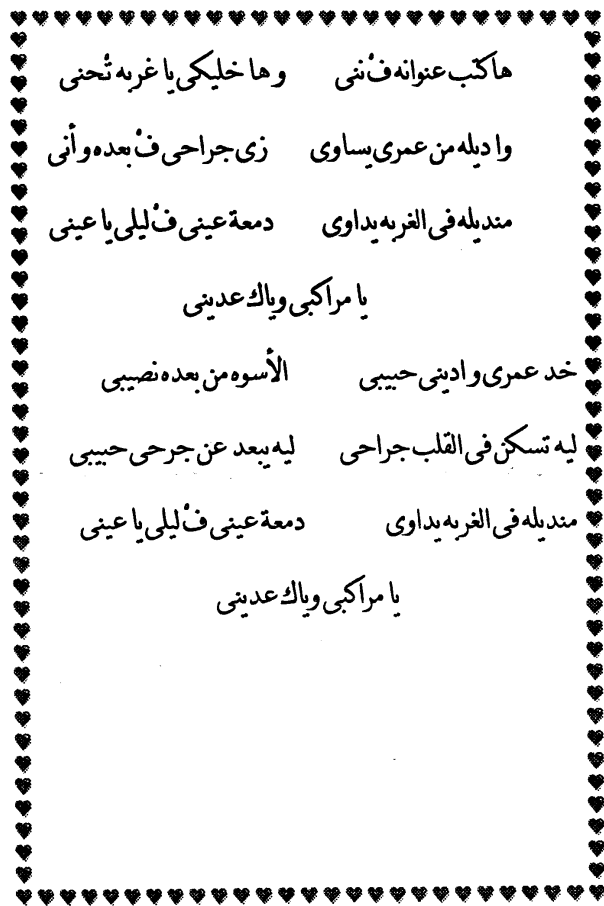 هاكتب عنوانه فْ ننى وها خليكى يا غربه تُحنى
واديله من عمرى يساوى زى جراحى فْ بعده وأنى
منديله فى الغربه يداوى دمعة عينى فْ ليلى يا عينى
يا مراكبى وياك عدينى
خد عمرى وادينى حبيبى الأسوه من بعده نصيبى
ليه تسكن فى القلب جراحى ليه يبعد عن جرحى حبيبى
منديله فى الغربه يداوى دمعة عينى فْ ليلى يا عينى
يا مراكبى وياك عدينى